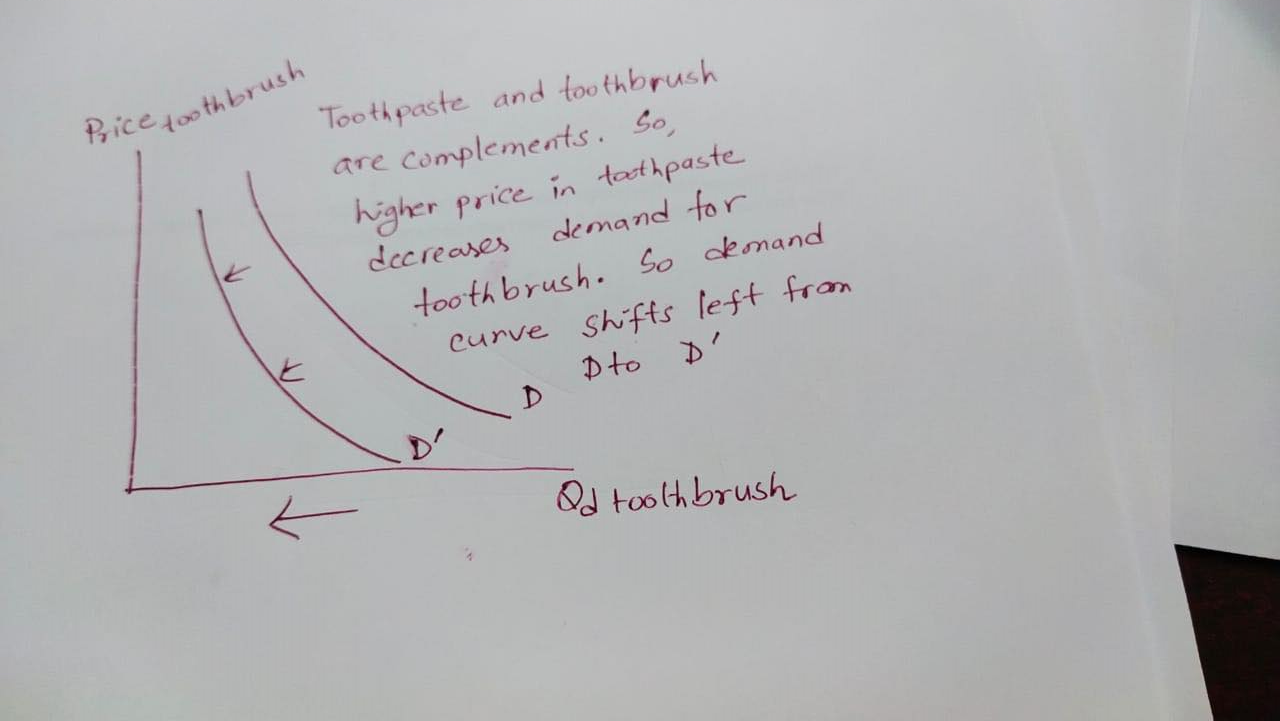 Price toothbrush
Toothpaste and toothbrush
are complements. So,
higher price in toothpaste
decreases demand for
toothbrush. So demand
curve shifts left from
D to D'
D
D'
Qd toothbrush